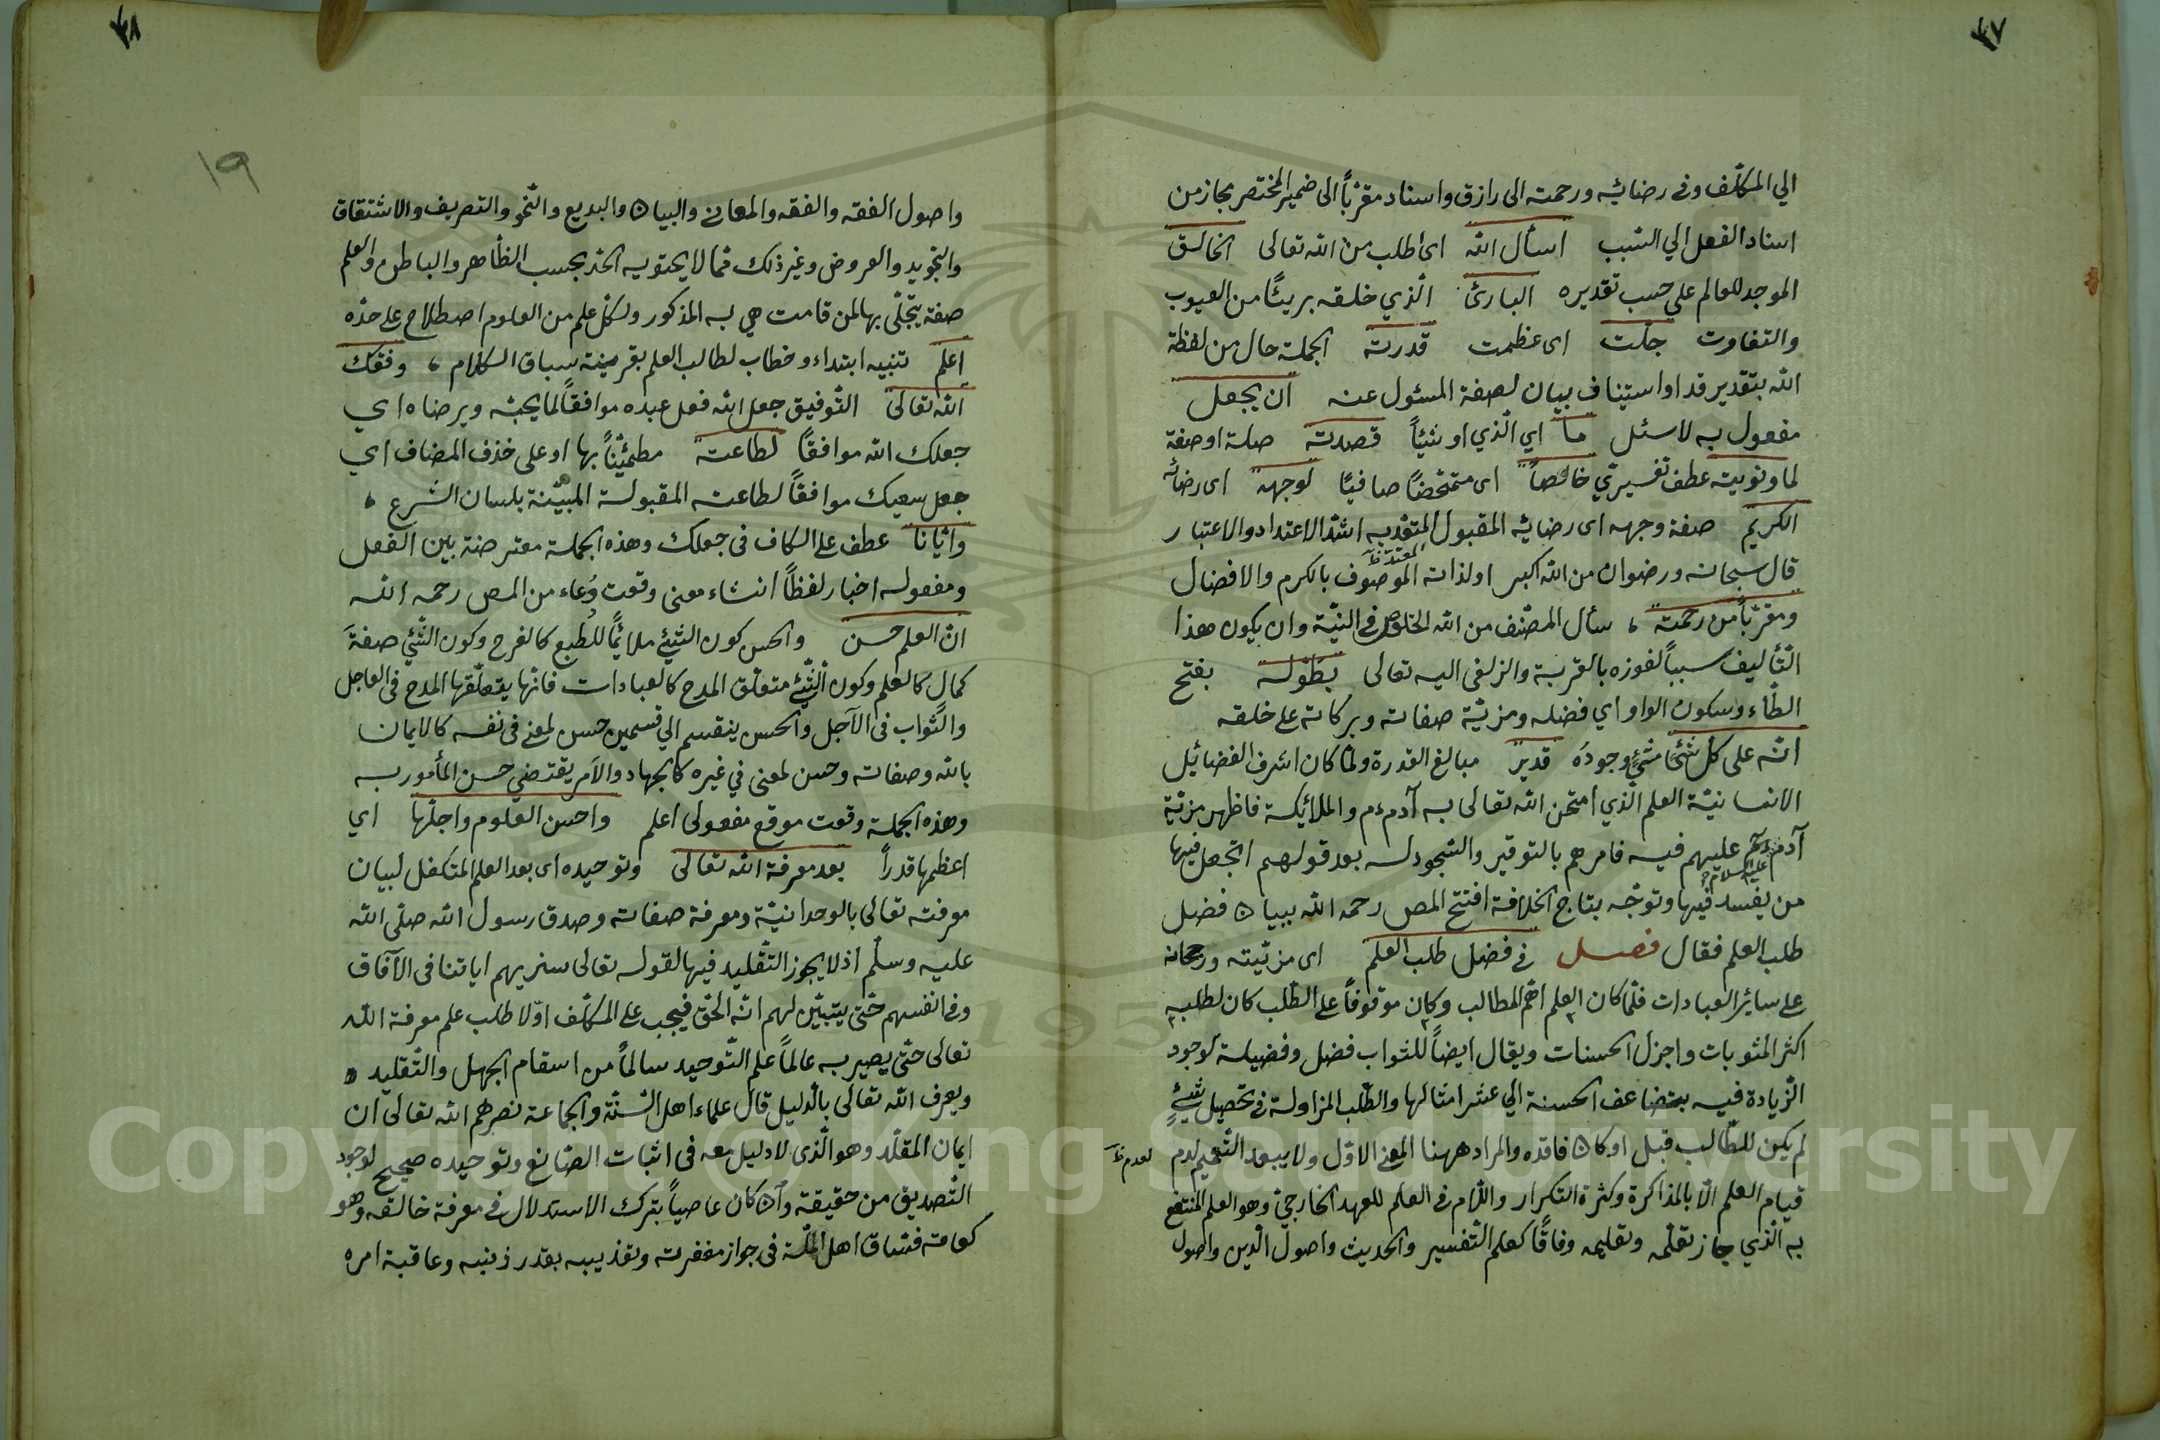 ٤٧
الي المكلّف وفى رضائيه ورحمته الى رازق واسناد مقرّباً الى ضمير المختصر مجاز من
اسناد الفعل الي السّبب اسأل الله اى اطلب من الله تعالى الخالق
الموجد للعالم على حسب تقديره البارئ الّذي خلقه بريئًا من العيوب
والتفاوت جلّت اى عظمت قدرته الجملة حال من لفظة
الله بتقدير قد او استيناف بيان لصفة المسئول عنه ان يجعل
مفعول به لاسئل ما اي الّذي او شيئاً قصدته صلة او صفة
لما ونويته عطف تفسيريّ خالصاً اى متمحّضًا صافيًا لوجهه اى رضائه
الكريم صفة وجهه اى رضائيه المقبول المعتدّ به اشدّ الاعتداد والاعتبار
قال سبحانه ورضوان من الله اكبر او لذاته الموصوف بالكرم والافضال
ومقرّباً من رحمته ، سأل المصنّف من الله الخلوص فى النيّة وان يكون هذا
التّأليف سبباً لفوزه بالقربة والزلفى اليه تعالى بطَوله بفتح
الطّاء وسكون الواو اي فضله ومزيّة صفاته وبركاته على خلقه
انّه على كل شئ مشئٍ وجودُه قدير مبالغ القدرة ولمّا كان اشرف الفضائل
الانسانيّة العلم الّذي امتحن الله تعالى به آدم ءم والملائيكة فاظهر مزيّة
آدم عليه السلام عليهم فيه فامرهم بالتوقير والسّجود له بعد قولهم اتجعل فيها
من يفسد فيها وتوجّه بتاج الخلافة افتتح المص رحمه الله ببيان فضل
طلب العلم فقال فصل فى فضل طلب العلم اى مزيّته ورجحانه
على سائر العبادات فلمّا كان العلم اهمّ المطالب وكان موقوفاً على الطّلب كان لطلبه
اكثر المثوبات واجزل الحسنات ويقال ايضاً للثواب فضل وفضيلة لوجود
الزّيادة فيه بتضاعف الحسنة الي عشر امثالها والطّلب المزاولة فى تحصيل شئٍ
لم يكن للطّالب قبل او كان فاقده والمراد ههنا المعنى الاوّل ولا يبعد التّعميم لدم لعدم ظ
قيام العلم الّا بالمذاكرة وكثرة التكرار واللّام فى العلم للعهد الخارجيّ وهو العلم المنتفع
به الّذي جاز تعلّمه وتعليمه وفاقًا كعلم التّفسير والحديث واصول الدّين واصول
٤٨
١٩
واصول الفقه والفقه والمعانى والبيان والبديع والنّحو والتصريف والاشتقاق
والتجويد والعروض وغير ذلك ممّا لا يحتويه الحدّ بحسب الظّاهر والباطن والعلم
صفة يتجلّى بها لمن قامت هي به المذكور ولكلّ علم من العلوم اصطلاح على حدّه
اعلم تنبيه ابتداء وخطاب لطالب العلم بقرينة سباق الكلام ، وفقك
الله تعالى التّوفيق جعل الله فعل عبده موافقاً لما يحبّه ويرضاه اي
جعلك الله موافقاً لطاعته مطمئنّاً بها او على حذف المضاف اي
جعل سعيك موافقاً لطاعته المقبولة المبيّنة بلسان الشّرع ،
وايّانا عطف على الكاف فى جعلك وهذه الجملة معترضة بين الفعل
ومفعوله اخبار لفظاً انشاء معنى وقعت دُعاء من المص رحمه الله
انّ العلم حسن والحسن كون الشّئ ملائمًا للطّبع كالفرح وكون الشّئ صفةَ
كمال كالعلم وكون الشّئ متعلّق المدح كالعبادات فانّها يتعلّقها المدح فى العاجل
والثّواب فى الآجل والحسن ينقسم الي قسمين حسن لمعنى فى نفسه كالايمان
بالله وصفاته وحسن لمعنى في غيره كالجهاد والأمر يقتضي حسن المأمور به
وهذه الجملة وقعت موقع مفعولى اعلم واحسن العلوم واجلّها اي
اعظمها قدراً بعد معرفة الله تعالى وتوحيده اى بعد العلم المتكفل لبيان
معرفته تعالى بالوحدانيّة ومعرفة صفاته وصدق رسول الله صلّى الله
عليه وسلّم اذ لا يجوز التّقليد فيها لقوله تعالى سنريهم اياتنا فى الآفاق
وفى انفسهم حتّى يتبيّن لهم انّه الحقّ فيجب على المكلّف اوّلا طلب علم معرفة الله
تعالى حتّى يصير به عالماً علم التّوحيد سالماً من اسقام الجهل والتّقليد
ويعرف الله تعالى بالدّليل قال علماء اهل السّنّة والجماعة نصرهم الله تعالى ان
ايمان المقلّد وهو الّذى لا دليل معه فى اثبات الصّانع وتوحيده صحيح لوجود
التّصديق من حقيقة وان كان عاصياً بترك الاستدلال فى معرفة خالقه وهو
كعامّة فسّاق اهل الملّة فى جواز مغفرته وتعذيبه بقدر ذنبه وعاقبة امره
Copyright © King Saud University